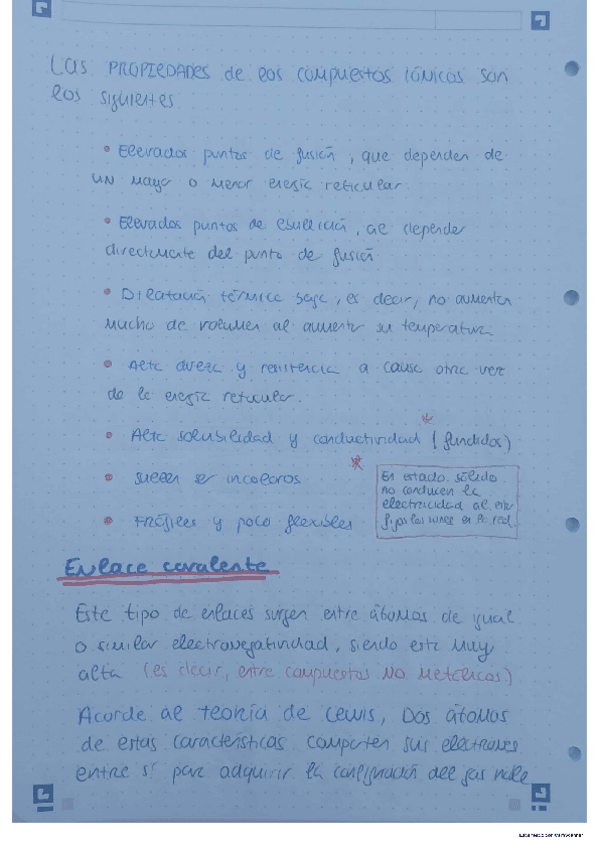 Las PROPIEDADES de los compuestos iónicos son
los siguientes
• Elevados puntos de fusión, que dependen de
un mayor o menor energía reticular.
• Elevados puntos de ebullición, al depender
directamente del punto de fusión
• Dilatación térmica baja, es decir, no aumentan
mucho de volumen al aumentar su temperatura.
• Alta dureza y resistencia a causa otra vez
de la energía reticular.
• Alta solubilidad y conductividad (fundidos)
• suelen ser incoloros
• Frágiles y poco flexibles
En estado sólido
no conducen la
electricidad al estar
fijos los iones en la red.
Enlace covalente
Este tipo de enlaces surgen entre átomos de igual
o similar electronegatividad, siendo esta muy
alta (es decir, entre compuestos NO Metálicos)
Acorde al teoría de Lewis, Dos átomos
de estas características comparten sus electrones
entre sí para adquirir la configuración del gas noble